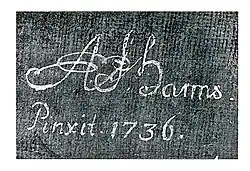 AFHarms.
Pinxit. 1736.